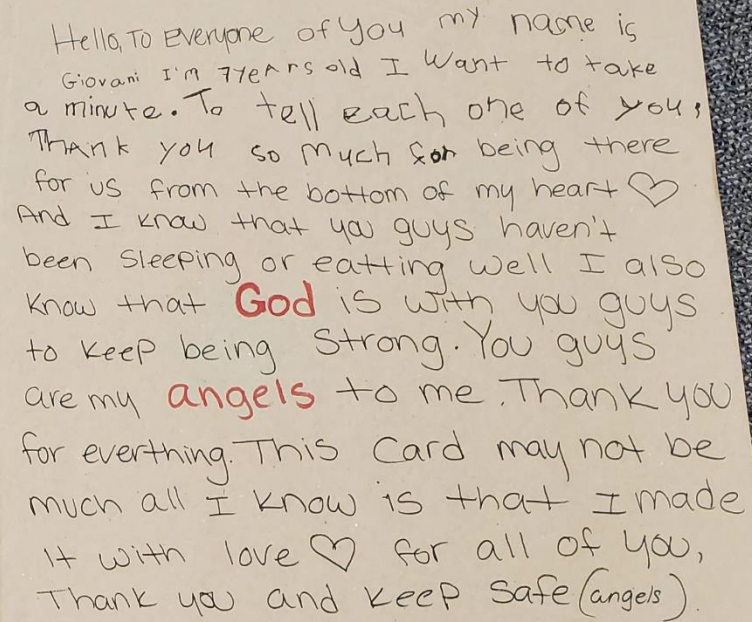 Hello, To Everyone of You my name is
Giovani I'm 7years old I Want to take
a minute. To tell each one of you,
Thank you so much for being there
for us from the bottom of my heart ♡
And I know that you guys haven't
been Sleeping or eatting well I also
know that God is with you guys
to keep being Strong. You guys
are my angels to me. Thank you
for everthing. This Card may not be
much all I know is that I made
It with love ♡ for all of you,
Thank you and keep Safe (angels).